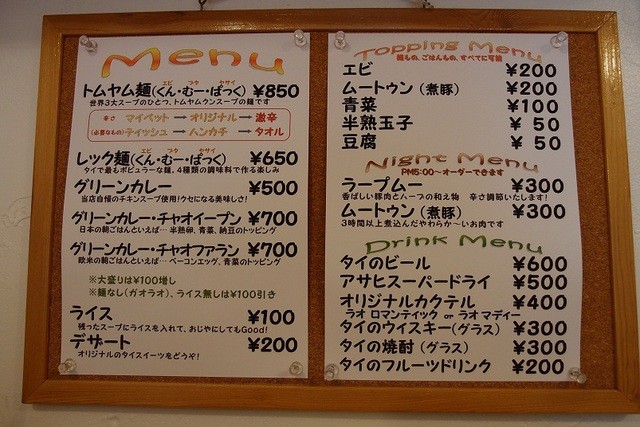 Menu
エビ ブタ ヤサイ
トムヤム麺(くん・むー・ぱっく) ¥850
世界3大スープのひとつ、トムヤムクンスープの麺です
辛さ マイペット → オリジナル → 激辛
(必要なもの)ティッシュ → ハンカチ → タオル
エビ ブタ ヤサイ
レック麺(くん・むー・ぱっく) ¥650
タイで最もポピュラーな麺。4種類の調味料で作る楽しみ
グリーンカレー ¥500
当店自慢のチキンスープ使用!クセになる美味しさ!
グリーンカレー・チャオイープン ¥700
日本の朝ごはんといえば… 半熟卵、青菜、納豆のトッピング
グリーンカレー・チャオファラン ¥700
欧米の朝ごはんといえば… ベーコンエッグ、青菜のトッピング
※大盛りは¥100増し
※麺なし(ガオラオ)、ライス無しは¥100引き
ライス ¥100
残ったスープにライスを入れて、おじやにしてもGood!
デザート ¥200
オリジナルのタイスイーツをどうぞ!
Topping Menu
麺もの、ごはんもの、すべてに可能
エビ ¥200
ムートゥン (煮豚) ¥200
青菜 ¥100
半熟玉子 ¥ 50
豆腐 ¥ 50
Night Menu
PM5:00~オーダーできます
ラープムー ¥300
香ばしい豚肉とハーブの和え物 辛さ調節いたします!
ムートゥン (煮豚) ¥300
3時間以上煮込んだやわらか~いお肉です
Drink Menu
タイのビール ¥600
アサヒスーパードライ ¥500
オリジナルカクテル ¥400
ラオ ロマンティック or ラオ マディー
タイのウイスキー(グラス) ¥300
タイの焼酎 (グラス) ¥300
タイのフルーツドリンク ¥200